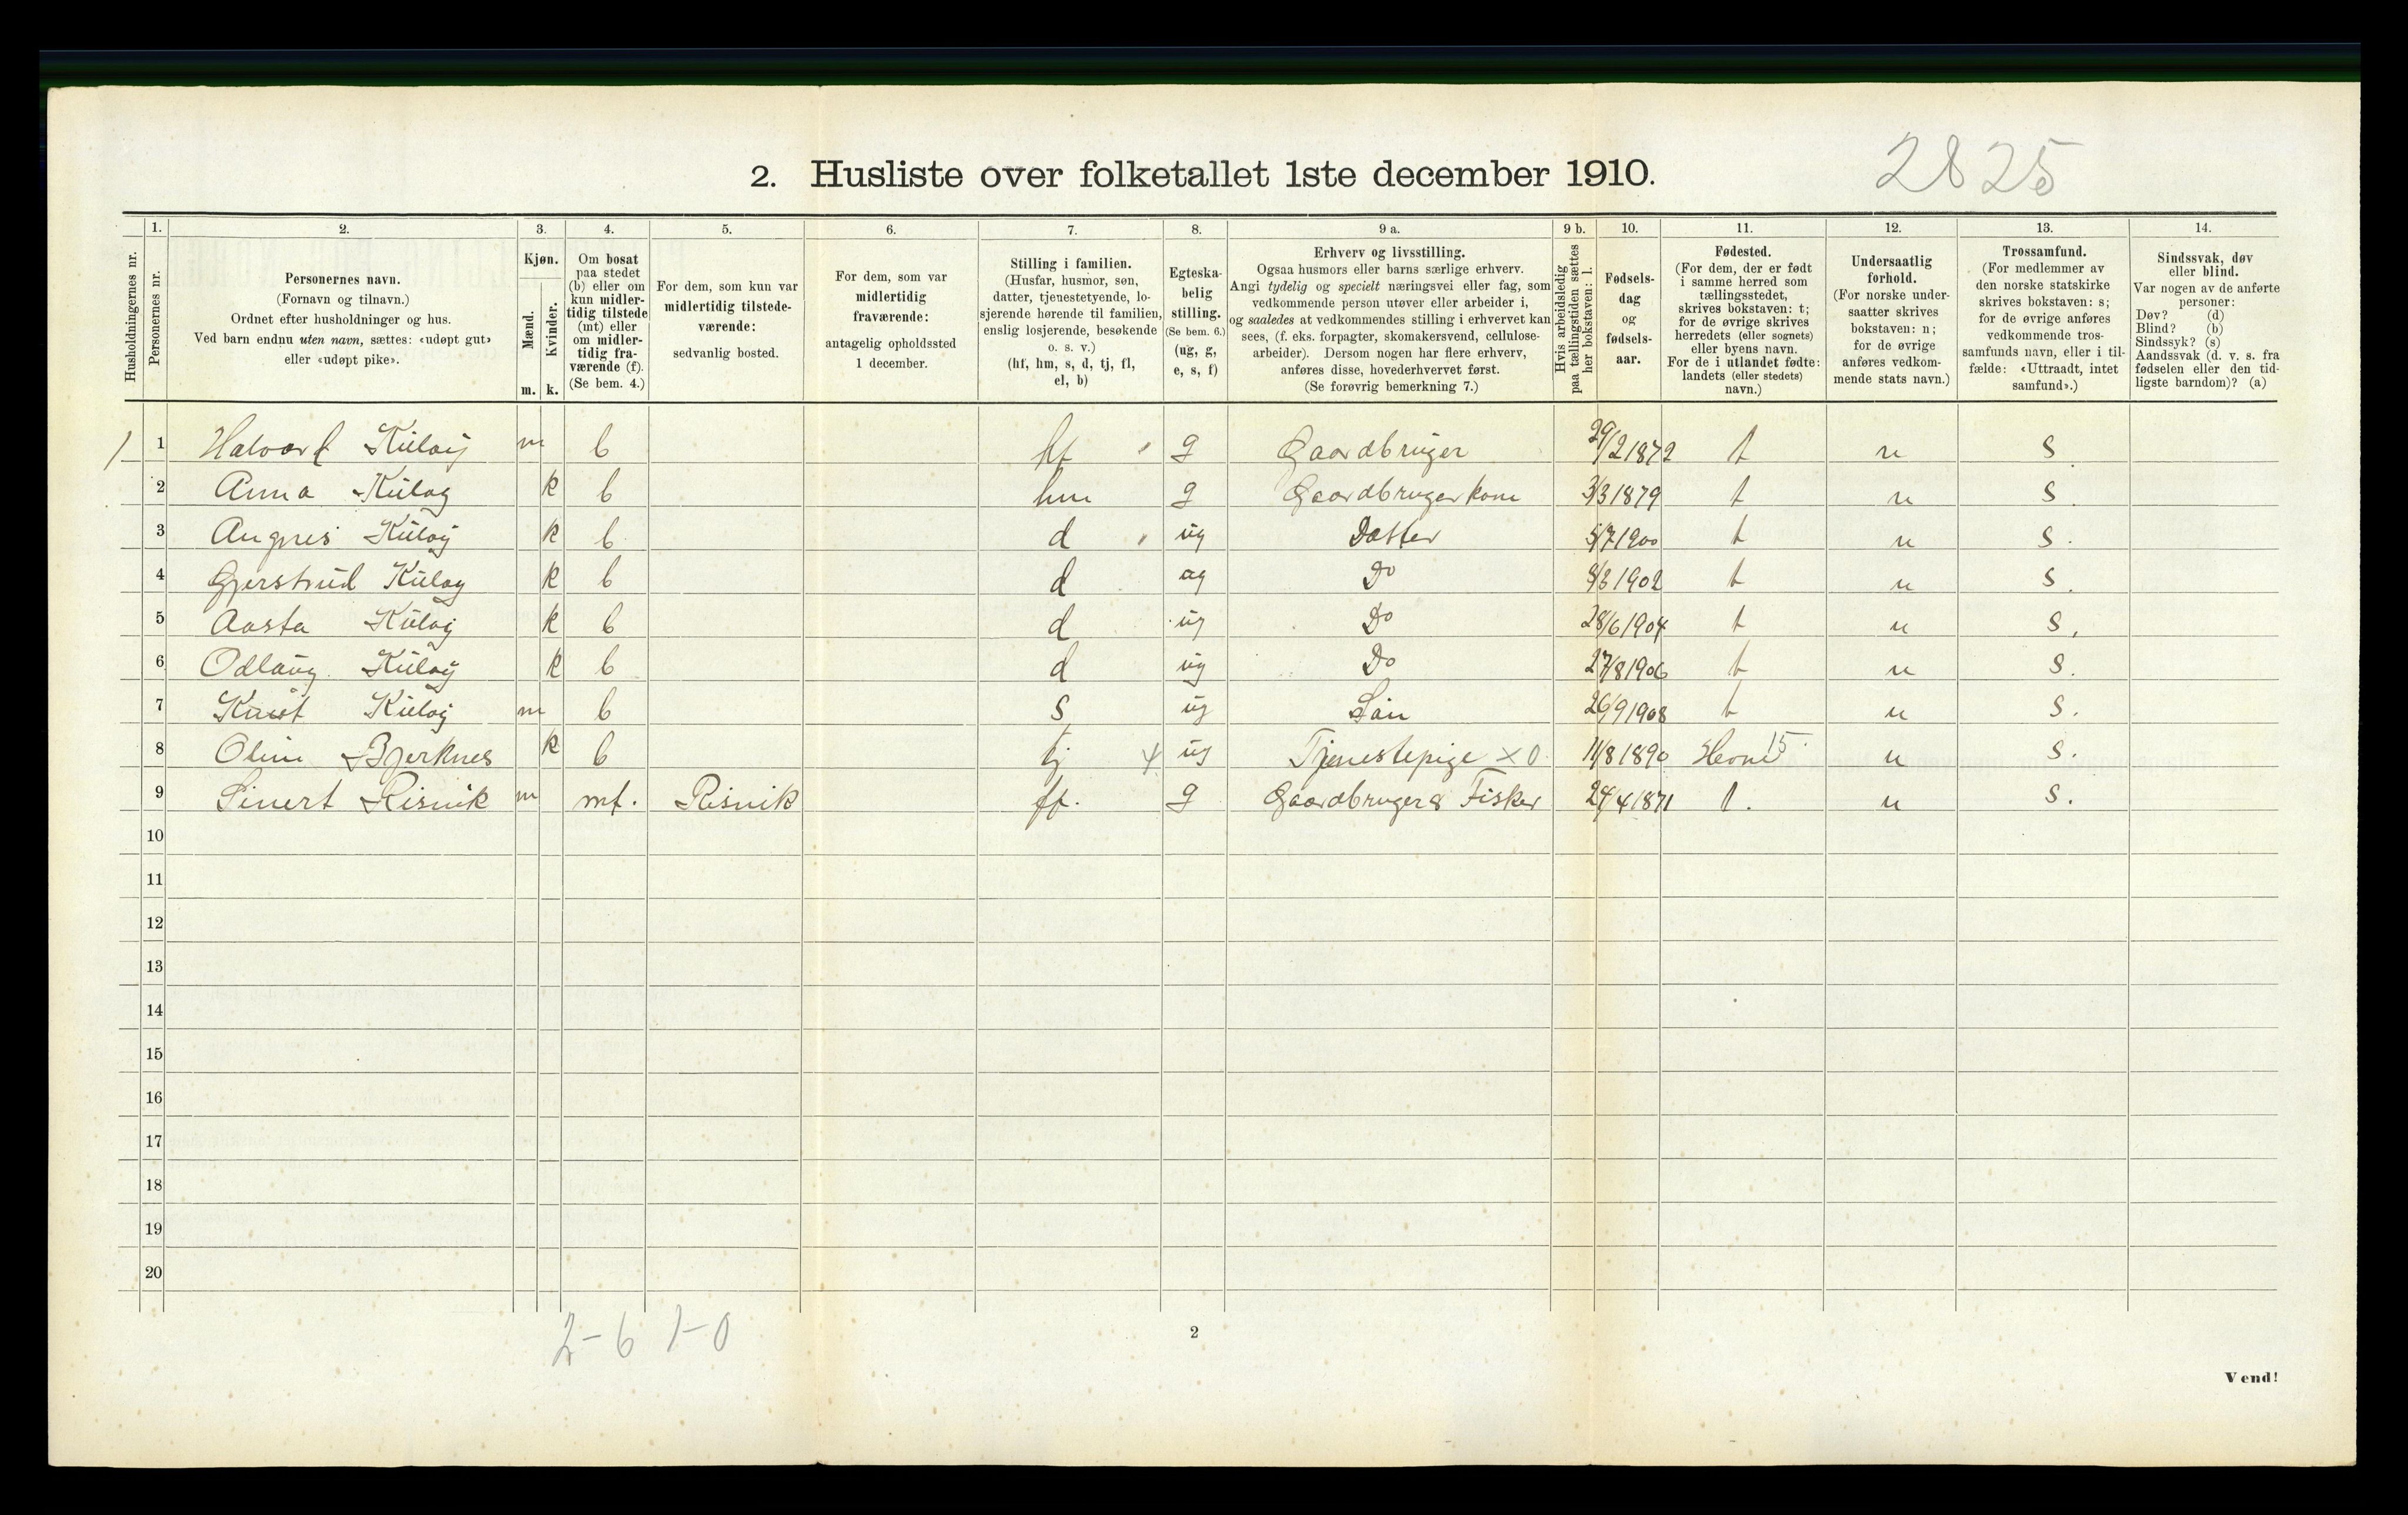 2825
2. Husliste over folketallet 1ste december 1910.
Husholdningernes nr.
1. Personernes nr.
2. Personernes navn.
(Fornavn og tilnavn.)
Ordnet efter husholdninger og hus.
Ved barn endnu uten navn, sættes: «udøpt gut»
eller «udøpt pike».
3. Kjøn.
Mænd. m.
Kvinder. k.
4. Om bosat
paa stedet
(b) eller om
kun midler-
tidig tilstede
(mt) eller
om midler-
tidig fra-
værende (f).
(Se bem. 4.)
5. For dem, som kun var
midlertidig tilstede-
værende:
sedvanlig bosted.
6. For dem, som var
midlertidig
fraværende:
antagelig opholdssted
1 december.
7. Stilling i familien.
(Husfar, husmor, søn,
datter, tjenestetyende, lo-
sjerende hørende til familien,
enslig losjerende, besøkende
o. s. v.)
(hf, hm, s, d, tj, fl,
el, b)
8. Egteska-
belig
stilling.
(Se bem. 6.)
(ug, g,
e, s, f)
9 a. Erhverv og livsstilling.
Ogsaa husmors eller barns særlige erhverv.
Angi tydelig og specielt næringsvei eller fag, som
vedkommende person utøver eller arbeider i,
og saaledes at vedkommendes stilling i erhvervet kan
sees, (f. eks. forpagter, skomakersvend, cellulose-
arbeider). Dersom nogen har flere erhverv,
anføres disse, hovederhvervet først.
(Se forøvrig bemerkning 7.)
9 b. Hvis arbeidsledig
paa tællingstiden sættes
her bokstaven: l.
10. Fødsels-
dag
og
fødsels-
aar.
11. Fødested.
(For dem, der er født
i samme herred som
tællingsstedet,
skrives bokstaven: t;
for de øvrige skrives
herredets (eller sognets)
eller byens navn.
For de i utlandet fødte:
landets (eller stedets)
navn.)
12. Undersaatlig
forhold.
(For norske under-
saatter skrives
bokstaven: n;
for de øvrige
anføres vedkom-
mende stats navn.)
13. Trossamfund.
(For medlemmer av
den norske statskirke
skrives bokstaven: s;
for de øvrige anføres
vedkommende tros-
samfunds navn, eller i til-
fælde: «Uttraadt, intet
samfund».)
14. Sindssvak, døv
eller blind.
Var nogen av de anførte
personer:
Døv? (d)
Blind? (b)
Sindssyk? (s)
Aandssvak (d. v. s. fra
fødselen eller den tid-
ligste barndom)? (a)
1 1 Halvard Kuløy m b hf g Gaardbruger 29/2 1872 t n s
2 Anna Kuløy k b hm g Gaardbrugerkone 3/3 1879 t n s.
3 Augnes Kuløy k b d ug Datter 5/7 1900 t n s.
4 Gjerstrud Kuløy k b d ug Do 8/3 1902 t n s.
5 Aasta Kuløy k b d ug Do 28/6 1904 t n s.
6 Odlaug Kuløy k b d ug Do 27/8 1906 t n s.
7 Knut Kuløy m b s ug Søn 26/9 1908 t n s.
8 Oline Bjerknes k b tj ug Tjenestepige x 0 11/8 1890 Hevne 15 n s.
9 Sinert Risnik m mt. Risnik g Gaardbruger & Fisker 24/4 1871 t. n s.
10
11
12
13
14
15
16
17
18
19
20
2-6 1-0
2
Vend!